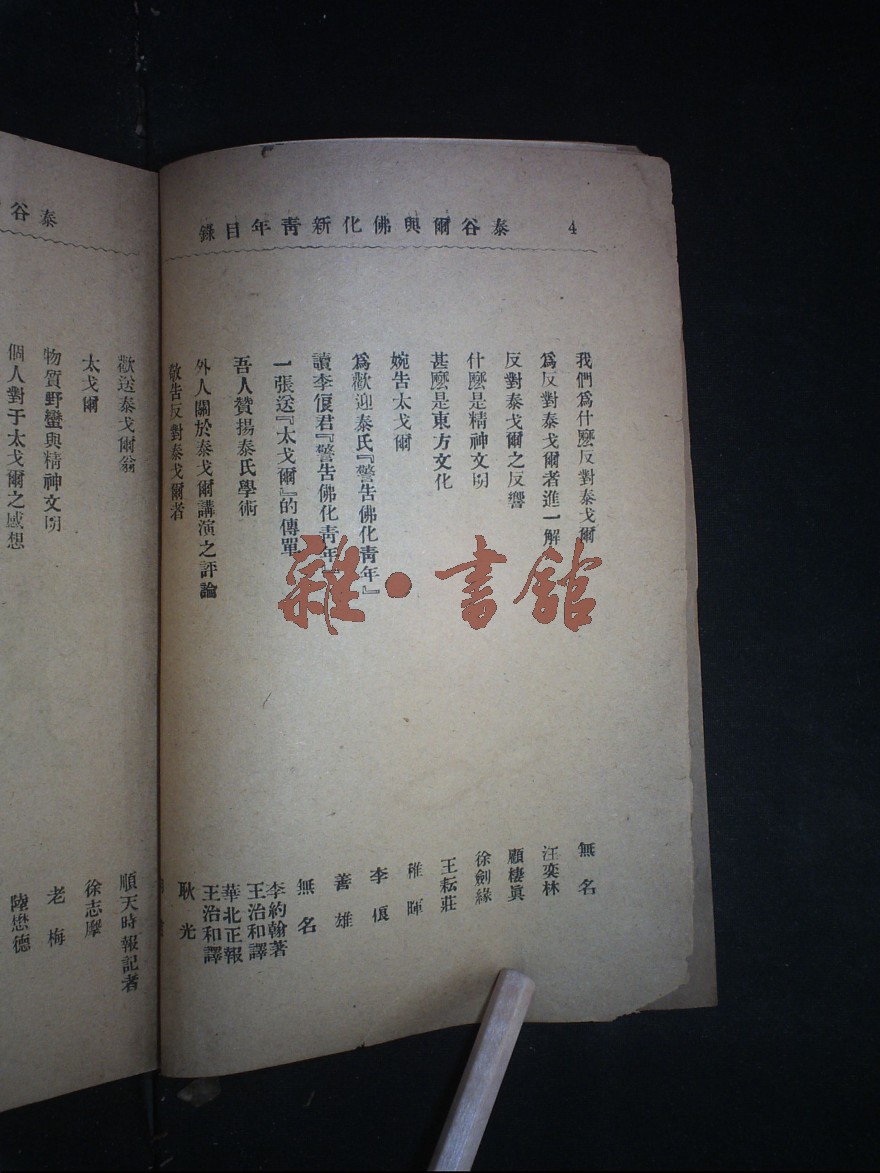 4
泰谷爾與佛化新靑年目錄
我們爲什麽反對泰戈爾 無名
爲反對泰戈爾者進一解 汪奕林
反對泰戈爾之反響 顧棲眞
什麽是精神文明 徐劍緣
甚麽是東方文化 王耘莊
婉告太戈爾 稚暉
爲歡迎泰氏『警告佛化靑年』 李偎
讀李偎君『警告佛化靑年』 善雄
一張送『太戈爾』的傳單 無名
吾人贊揚泰氏學術 李約翰著 王治和譯
外人關於泰戈爾講演之評論 華北正報 王治和譯
敬告反對泰戈爾者 耿光
泰谷
歡送泰戈爾翁 順天時報記者
太戈爾 徐志摩
物質野蠻與精神文明 老梅
個人對于太戈爾之感想 陸懋德
雜·書館